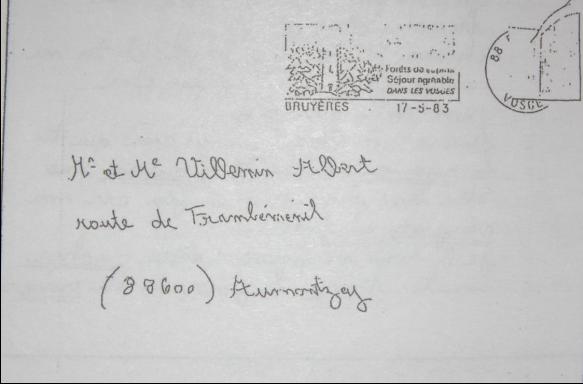 Forêts de sapins
Séjour agréable
DANS LES VOSGES
BRUYÈRES 17-5-83
88
VOSGES
Mr et Me Villemin Albert
route de Frambéménil
(88600) Aumontzey